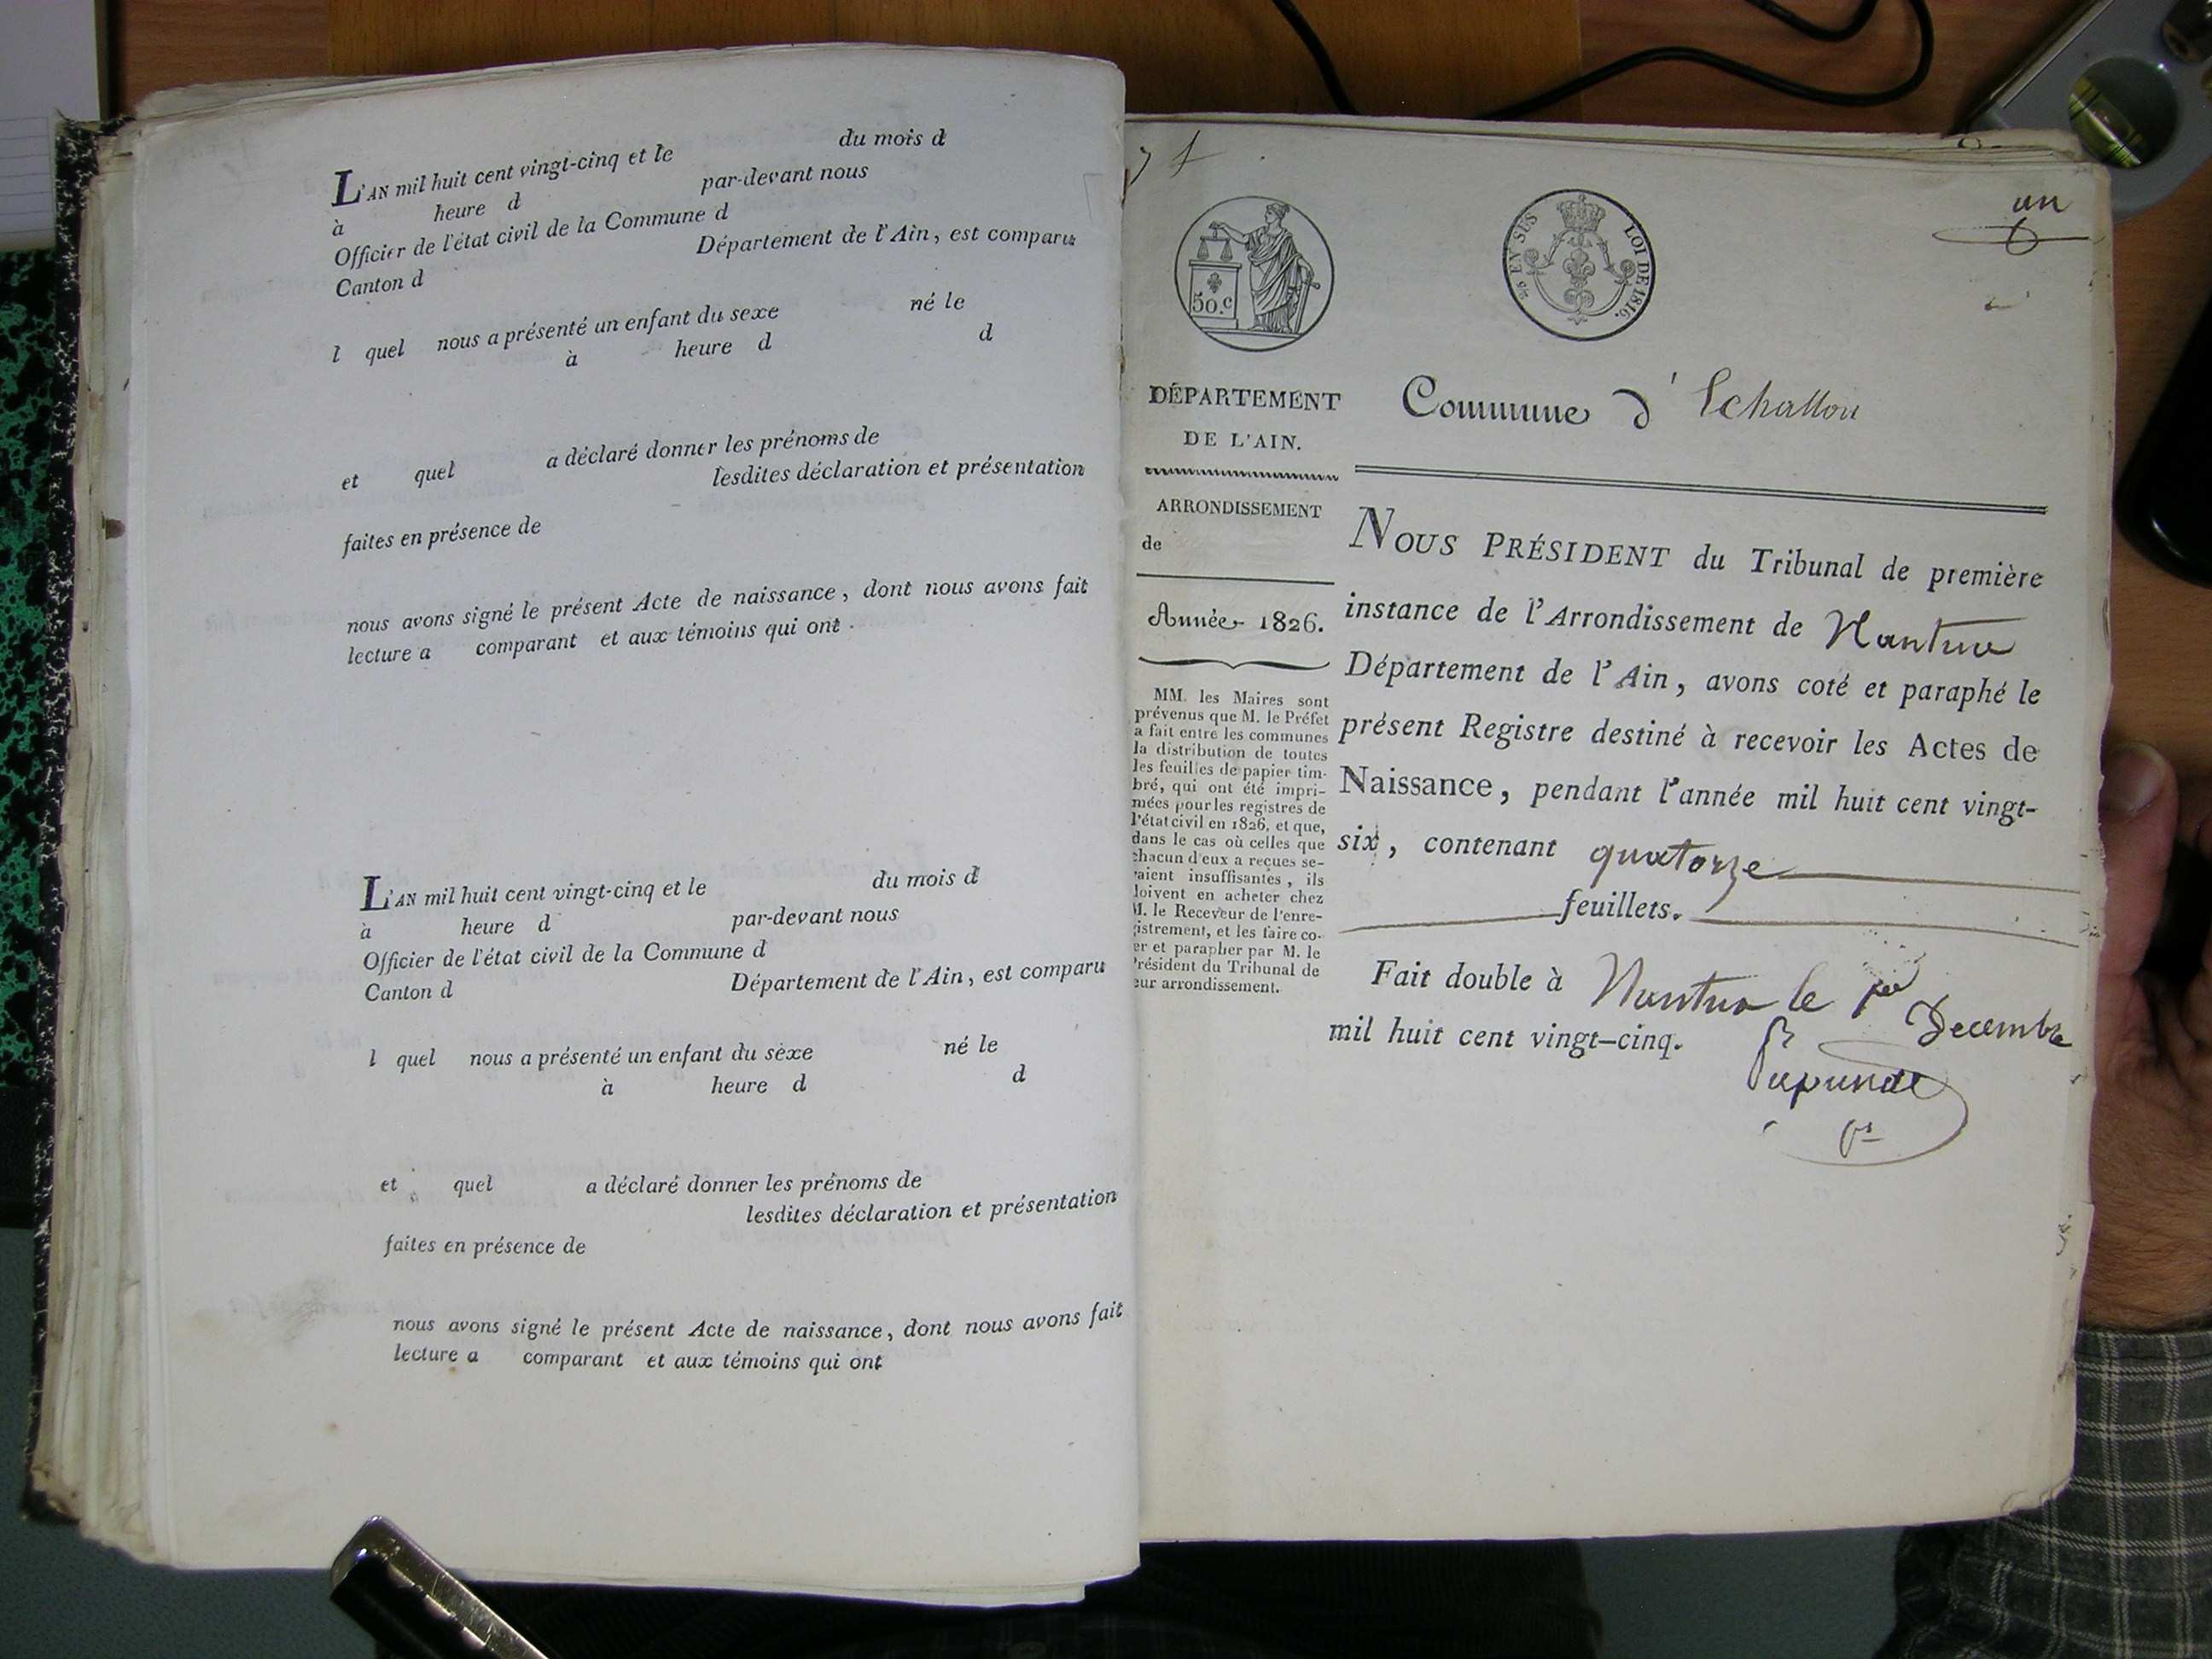 L'AN mil huit cent vingt-cinq et le du mois d
à heure d par-devant nous
Officier de l'état civil de la Commune d
Canton d Département de l'Ain, est comparu
l quel nous a présenté un enfant du sexe né le
à heure d d
et quel a déclaré donner les prénoms de
lesdites déclaration et présentation
faites en présence de
nous avons signé le présent Acte de naissance, dont nous avons fait
lecture a comparant et aux témoins qui ont
L'AN mil huit cent vingt-cinq et le du mois d
à heure d par-devant nous
Officier de l'état civil de la Commune d
Canton d Département de l'Ain, est comparu
l quel nous a présenté un enfant du sexe né le
à heure d d
et quel a déclaré donner les prénoms de
lesdites déclaration et présentation
faites en présence de
nous avons signé le présent Acte de naissance, dont nous avons fait
lecture a comparant et aux témoins qui ont
un
50.c
EN SUS LOI DE 1816.
DÉPARTEMENT
DE L'AIN.
ARRONDISSEMENT
de
Année 1826.
MM. les Maires sont
prévenus que M. le Préfet
a fait entre les communes
la distribution de toutes
les feuilles de papier tim-
bré, qui ont été impri-
mées pour les registres de
l'état civil en 1826, et que,
dans le cas où celles que
chacun d'eux a reçues se-
raient insuffisantes, ils
doivent en acheter chez
M. le Receveur de l'enre-
gistrement, et les faire co-
ter et parapher par M. le
Président du Tribunal de
leur arrondissement.
Commune d'Echallon
NOUS PRÉSIDENT du Tribunal de première
instance de l'Arrondissement de Nantua
Département de l'Ain, avons coté et paraphé le
présent Registre destiné à recevoir les Actes de
Naissance, pendant l'année mil huit cent vingt-
six, contenant quatorze
feuillets.
Fait double à Nantua le 1er Decembre
mil huit cent vingt-cinq.